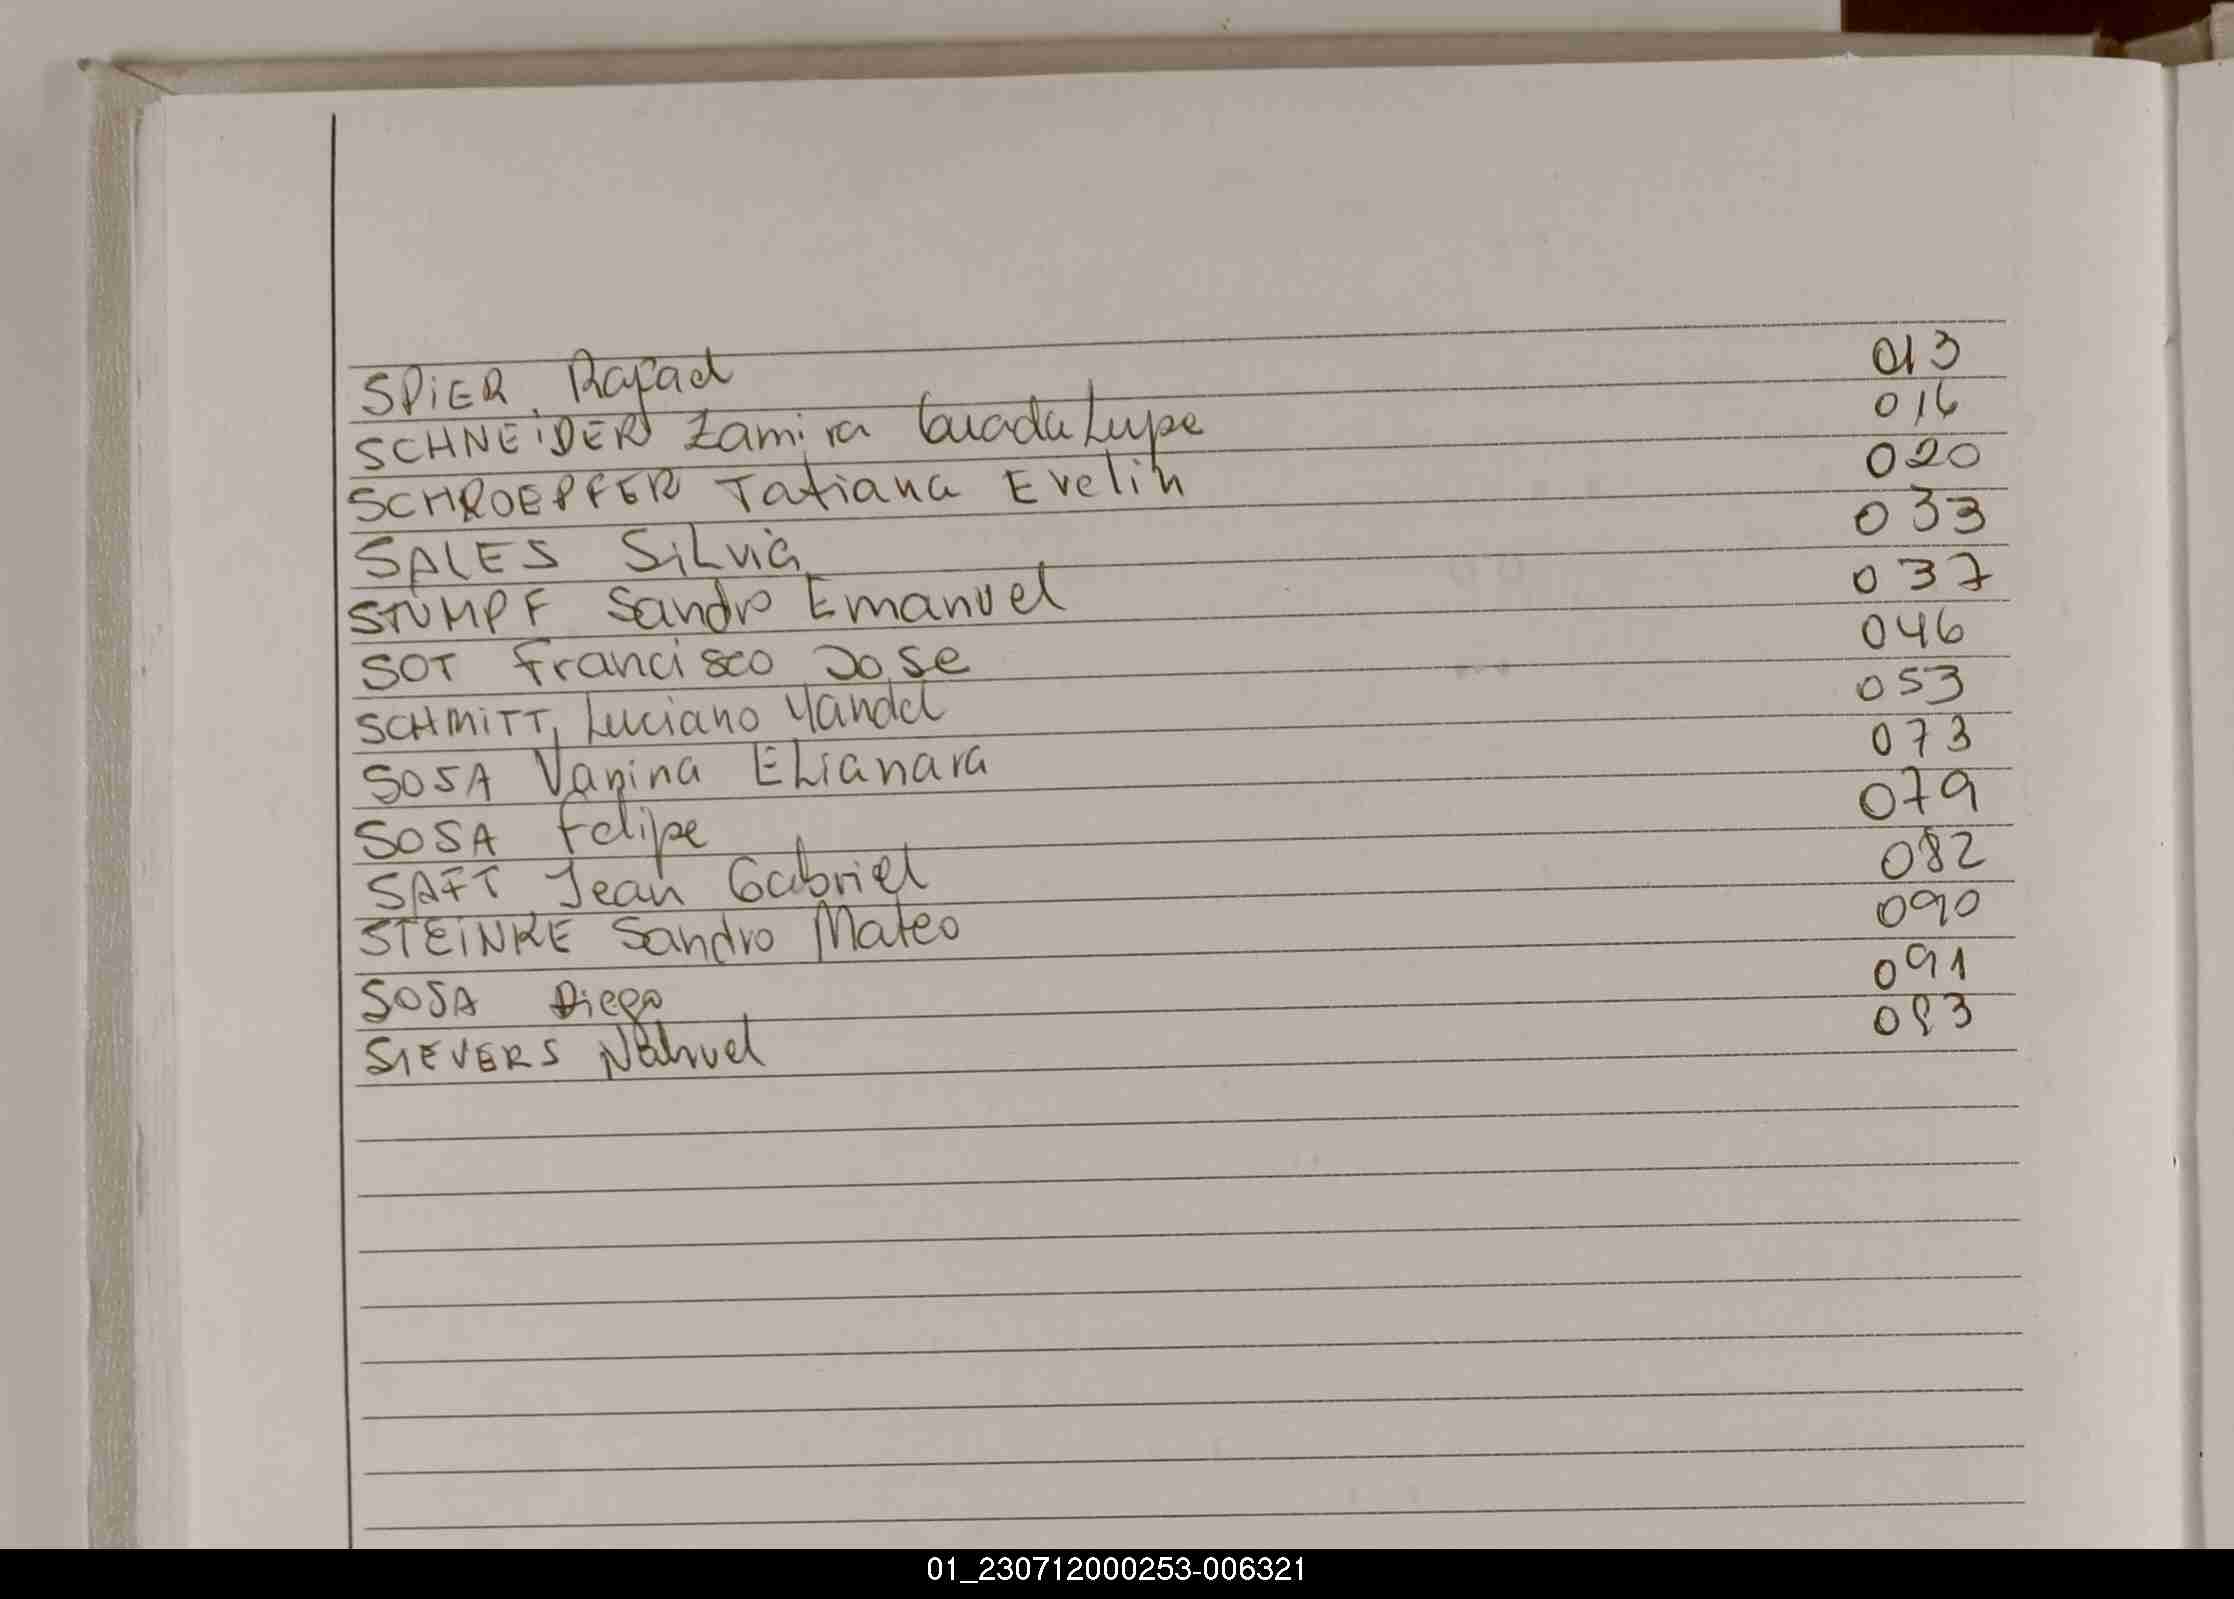 SPIER, Rafael 013
SCHNEIDER Zamira Guadalupe 016
SCHROEPFER Tatiana Evelin 020
SALES Silvia 033
STUMPF Sandro Emanuel 037
SOT Francisco Jose 046
SCHMITT, Luciano Yandel 053
SOSA Vanina Elianara 073
SOSA Felipe 079
SAFT Jean Gabriel 082
STEINKE Sandro Mateo 090
SOSA Diego 091
SIEVERS Nahuel
01_230712000253-006321